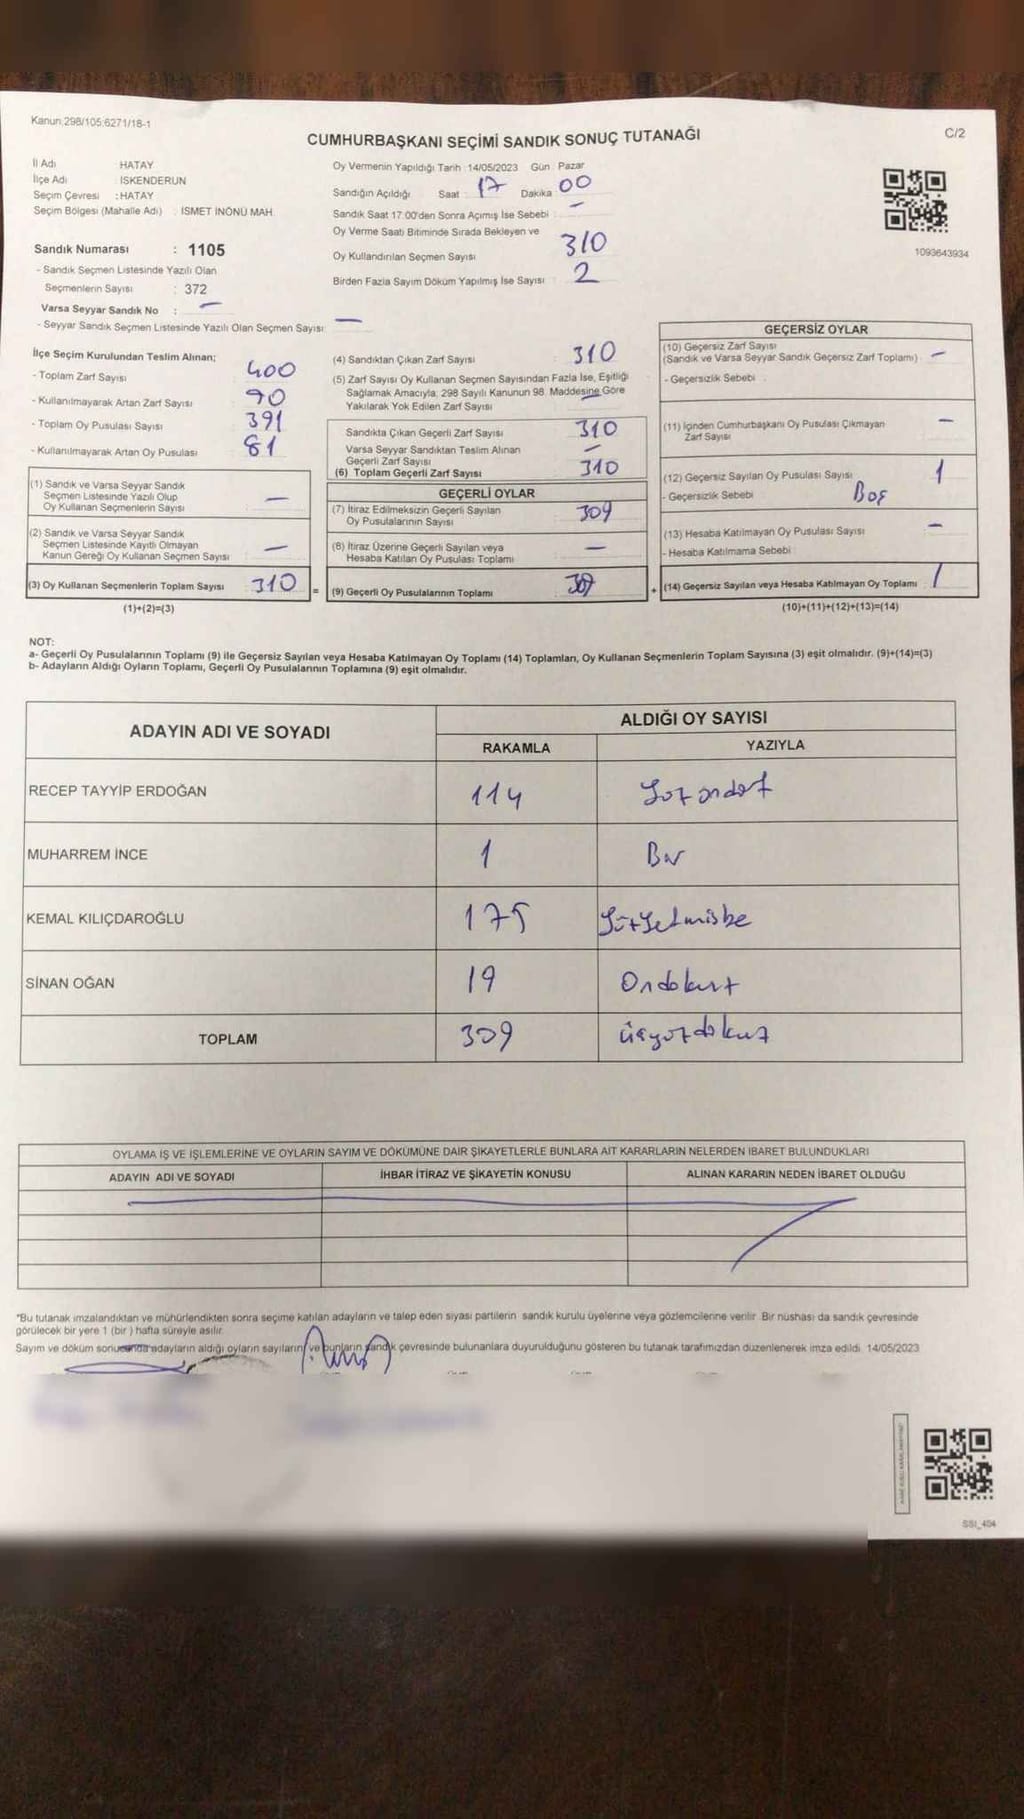 Kanun.298/105:6271/18-1
C/2
CUMHURBAŞKANI SEÇİMİ SANDIK SONUÇ TUTANAĞI
İl Adı HATAY
İlçe Adı İSKENDERUN
Seçim Çevresi : HATAY
Seçim Bölgesi (Mahalle Adı) : İSMET İNÖNÜ MAH.
Sandık Numarası : 1105
- Sandık Seçmen Listesinde Yazılı Olan
Seçmenlerin Sayısı : 372
Varsa Seyyar Sandık No : —
- Seyyar Sandık Seçmen Listesinde Yazılı Olan Seçmen Sayısı: —
Oy Vermenin Yapıldığı Tarih :14/05/2023 Gün : Pazar
Sandığın Açıldığı Saat 17 Dakika 00
Sandık Saat 17:00'den Sonra Açımış İse Sebebi : —
Oy Verme Saati Bitiminde Sırada Bekleyen ve
Oy Kullandırılan Seçmen Sayısı 310
Birden Fazla Sayım Döküm Yapılmış İse Sayısı : 2
1093643934
İlçe Seçim Kurulundan Teslim Alınan;
- Toplam Zarf Sayısı 400
- Kullanılmayarak Artan Zarf Sayısı 90
- Toplam Oy Pusulası Sayısı 391
- Kullanılmayarak Artan Oy Pusulası 81
(1) Sandık ve Varsa Seyyar Sandık
Seçmen Listesinde Yazılı Olup
Oy Kullanan Seçmenlerin Sayısı —
(2) Sandık ve Varsa Seyyar Sandık
Seçmen Listesinde Kayıtlı Olmayan
Kanun Gereği Oy Kullanan Seçmen Sayısı —
(3) Oy Kullanan Seçmenlerin Toplam Sayısı 310 =
(1)+(2)=(3)
(4) Sandıktan Çıkan Zarf Sayısı : 310
(5) Zarf Sayısı Oy Kullanan Seçmen Sayısından Fazla İse, Eşitliği
Sağlamak Amacıyla, 298 Sayılı Kanunun 98. Maddesine Göre
Yakılarak Yok Edilen Zarf Sayısı —
Sandıkta Çıkan Geçerli Zarf Sayısı 310
Varsa Seyyar Sandıktan Teslim Alınan
Geçerli Zarf Sayısı —
(6) Toplam Geçerli Zarf Sayısı 310
GEÇERLİ OYLAR
(7) İtiraz Edilmeksizin Geçerli Sayılan
Oy Pusulalarının Sayısı 309
(8) İtiraz Üzerine Geçerli Sayılan veya
Hesaba Katılan Oy Pusulası Toplamı —
(9) Geçerli Oy Pusulalarının Toplamı 309 +
GEÇERSİZ OYLAR
(10) Geçersiz Zarf Sayısı
(Sandık ve Varsa Seyyar Sandık Geçersiz Zarf Toplamı) : —
- Geçersizlik Sebebi :
(11) İçinden Cumhurbaşkanı Oy Pusulası Çıkmayan
Zarf Sayısı —
(12) Geçersiz Sayılan Oy Pusulası Sayısı 1
- Geçersizlik Sebebi : Boş
(13) Hesaba Katılmayan Oy Pusulası Sayısı —
- Hesaba Katılmama Sebebi :
(14) Geçersiz Sayılan veya Hesaba Katılmayan Oy Toplamı : 1
(10)+(11)+(12)+(13)=(14)
NOT:
a- Geçerli Oy Pusulalarının Toplamı (9) ile Geçersiz Sayılan veya Hesaba Katılmayan Oy Toplamı (14) Toplamları, Oy Kullanan Seçmenlerin Toplam Sayısına (3) eşit olmalıdır. (9)+(14)=(3)
b- Adayların Aldığı Oyların Toplamı, Geçerli Oy Pusulalarının Toplamına (9) eşit olmalıdır.
ADAYIN ADI VE SOYADI
ALDIĞI OY SAYISI
RAKAMLA YAZIYLA
RECEP TAYYİP ERDOĞAN 114 Yüzondört
MUHARREM İNCE 1 Bir
KEMAL KILIÇDAROĞLU 175 Yüzyetmişbe
SİNAN OĞAN 19 Ondokuz
TOPLAM 309 üçyüzdokuz
OYLAMA İŞ VE İŞLEMLERİNE VE OYLARIN SAYIM VE DÖKÜMÜNE DAİR ŞİKAYETLERLE BUNLARA AİT KARARLARIN NELERDEN İBARET BULUNDUKLARI
ADAYIN ADI VE SOYADI İHBAR İTİRAZ VE ŞİKAYETİN KONUSU ALINAN KARARIN NEDEN İBARET OLDUĞU
*Bu tutanak imzalandıktan ve mühürlendikten sonra seçime katılan adayların ve talep eden siyasi partilerin sandık kurulu üyelerine veya gözlemcilerine verilir. Bir nüshası da sandık çevresinde
görülecek bir yere 1 (bir ) hafta süreyle asılır.
Sayım ve döküm sonucunda adayların aldığı oyların sayıların ve bunların sandık çevresinde bulunanlara duyurulduğunu gösteren bu tutanak tarafımızdan düzenlenerek imza edildi. 14/05/2023
SSI_404